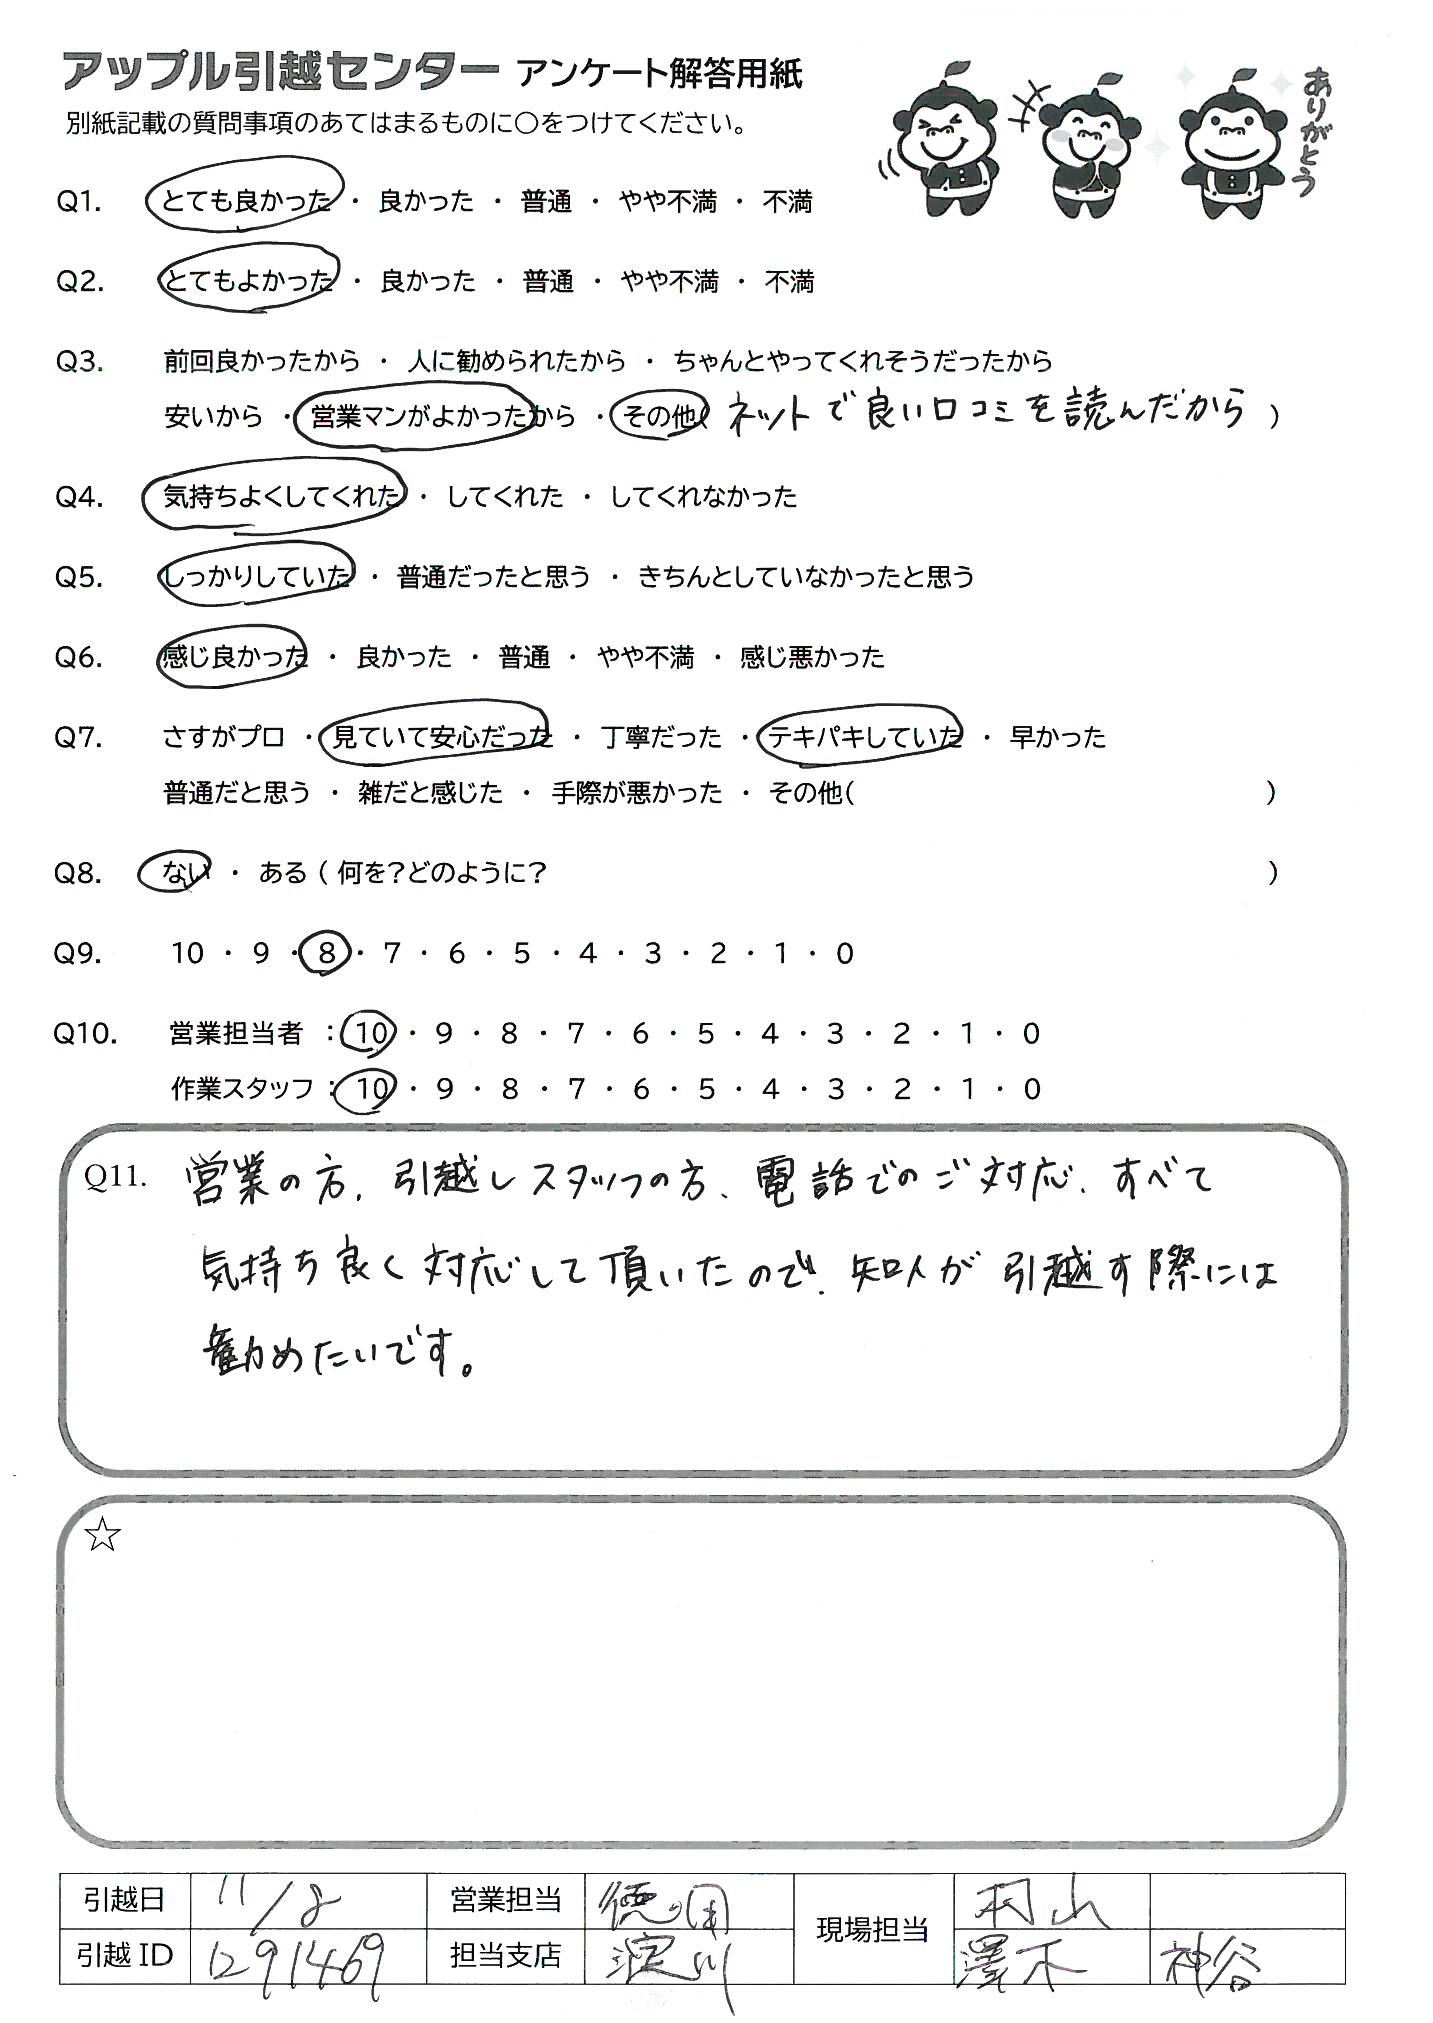 アップル引越センター アンケート解答用紙
別紙記載の質問事項のあてはまるものに〇をつけてください。
ありがとう
Q1. とても良かった ・ 良かった ・ 普通 ・ やや不満 ・ 不満
Q2. とてもよかった ・ 良かった ・ 普通 ・ やや不満 ・ 不満
Q3. 前回良かったから ・ 人に勧められたから ・ ちゃんとやってくれそうだったから
安いから ・ 営業マンがよかったから ・ その他( ネットで良い口コミを読んだから )
Q4. 気持ちよくしてくれた ・ してくれた ・ してくれなかった
Q5. しっかりしていた ・ 普通だったと思う ・ きちんとしていなかったと思う
Q6. 感じ良かった ・ 良かった ・ 普通 ・ やや不満 ・ 感じ悪かった
Q7. さすがプロ ・ 見ていて安心だった ・ 丁寧だった ・ テキパキしていた ・ 早かった
普通だと思う ・ 雑だと感じた ・ 手際が悪かった ・ その他( )
Q8. ない ・ ある ( 何を?どのように? )
Q9. 10 ・ 9 ・ 8 ・ 7 ・ 6 ・ 5 ・ 4 ・ 3 ・ 2 ・ 1 ・ 0
Q10. 営業担当者 : 10 ・ 9 ・ 8 ・ 7 ・ 6 ・ 5 ・ 4 ・ 3 ・ 2 ・ 1 ・ 0
作業スタッフ : 10 ・ 9 ・ 8 ・ 7 ・ 6 ・ 5 ・ 4 ・ 3 ・ 2 ・ 1 ・ 0
Q11. 営業の方、引越しスタッフの方、電話でのご対応、すべて
気持ち良く対応して頂いたので、知人が引越す際には
勧めたいです。
☆
引越日 11/8 営業担当 現場担当 村山
引越ID 1291469 担当支店 淀川 澤木 神谷